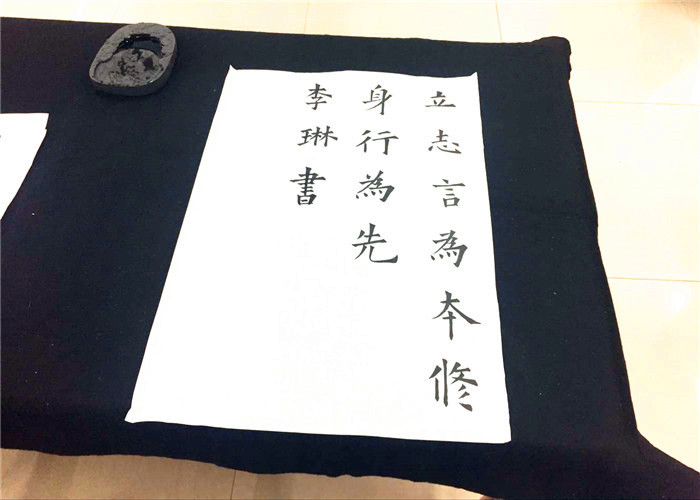 立志言為本修
身行為先
李琳書